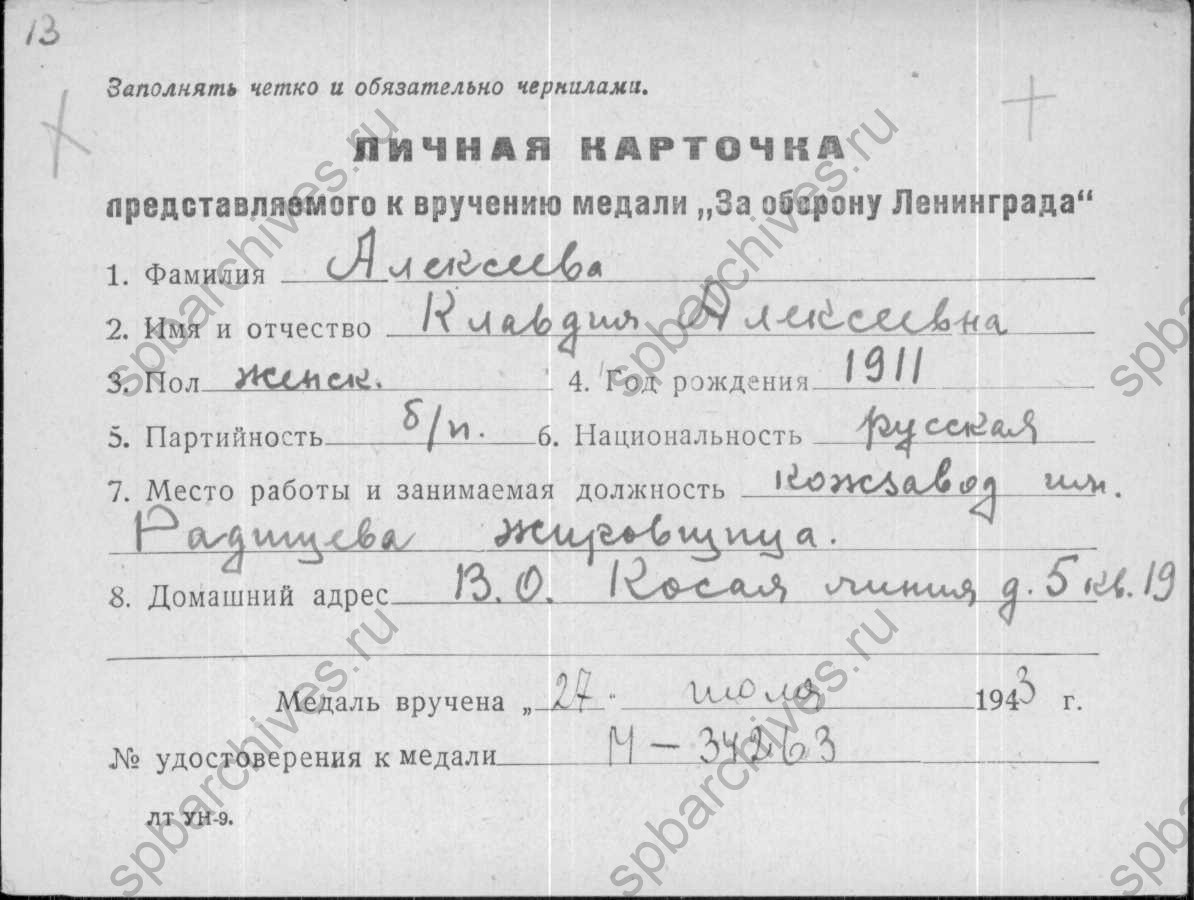 13
Заполнять четко и обязательно чернилами.
ЛИЧНАЯ КАРТОЧКА
представляемого к вручению медали „За оборону Ленинграда“
1. Фамилия Алексеева
2. Имя и отчество Клавдия Алексеевна
3. Пол женск. 4. Год рождения 1911
5. Партийность б/п. 6. Национальность русская
7. Место работы и занимаемая должность кожзавод им.
Радищева жировщица.
8. Домашний адрес В.О. Косая линия д. 5 кв. 19
Медаль вручена „27 июля 1943 г.
№ удостоверения к медали М — 34263
ЛТ УН-9.
spbarchives.ru
spbarchives.ru
spbarchives.ru
spbarchives.ru